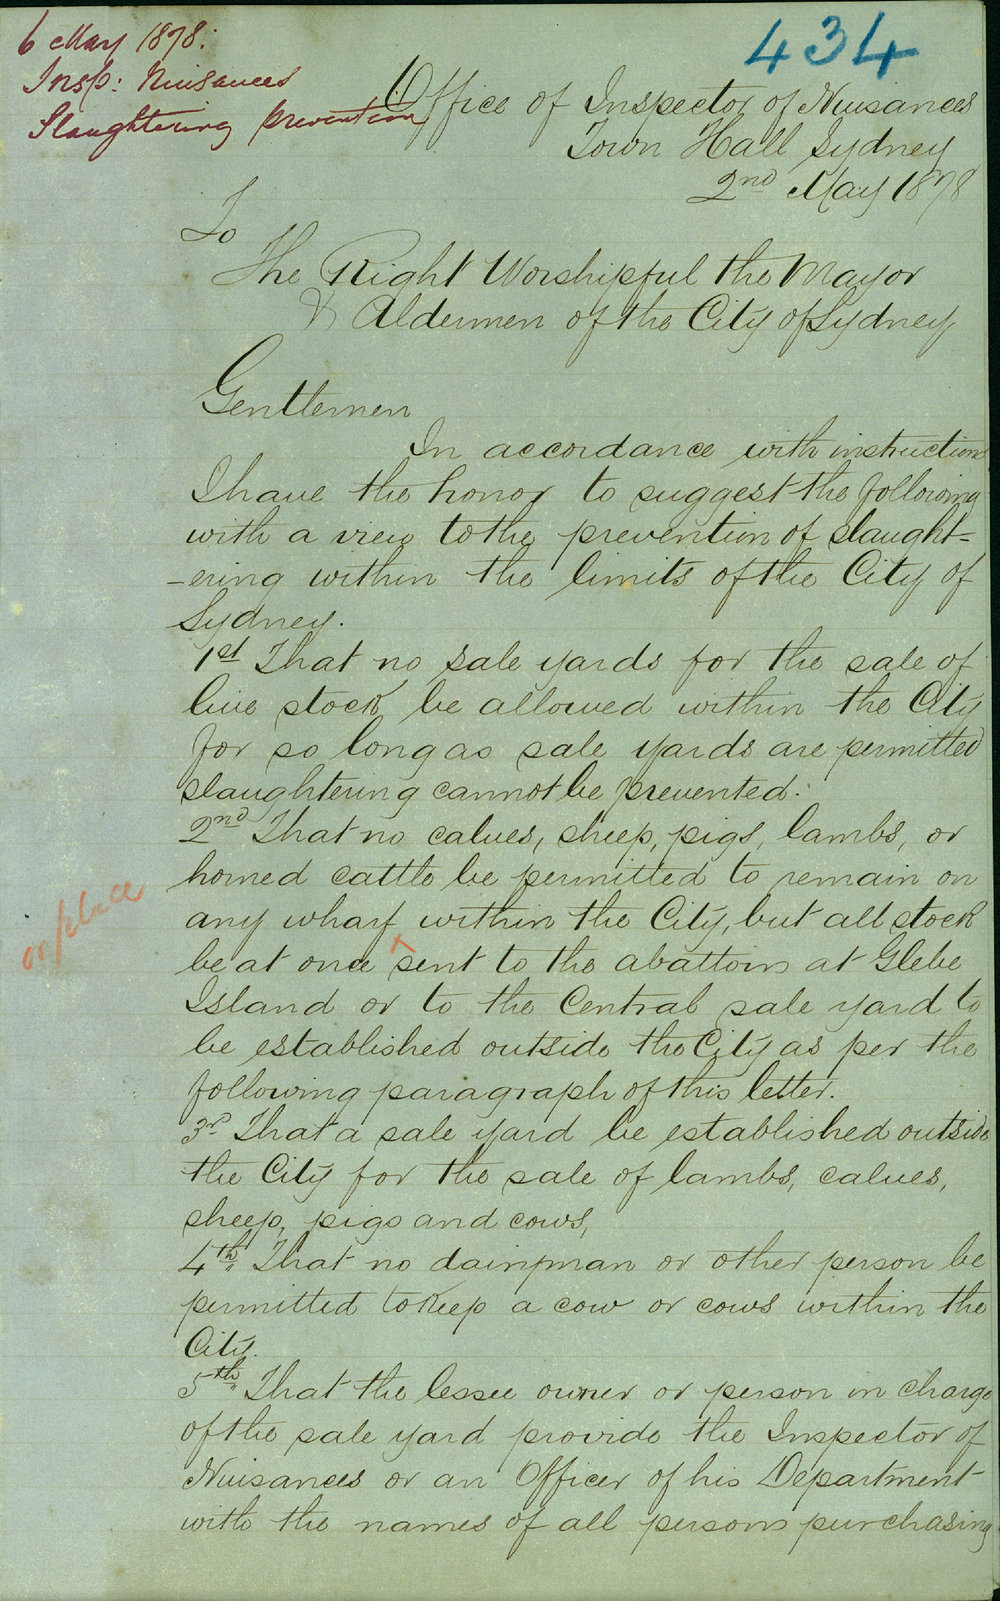 6 May 1878.
Insp: Nuisances
Slaughtering prevention
434
Office of Inspector of Nuisances
Town Hall Sydney
2nd May 1878
To
The Right Worshipful the Mayor
& Aldermen of the City of Sydney
Gentlemen
In accordance with instructions
I have the honor to suggest the following
with a view to the prevention of slaught=
-ering within the limits of the City of
Sydney.
1st That no sale yards for the sale of
live stock be allowed within the City
for so long as sale yards are permitted
slaughtering cannot be prevented.
2nd That no calves, sheep, pigs, lambs, or
horned cattle be permitted to remain on
any wharf ^ within the City, but all stock
or place
be at once sent to the abattoirs at Glebe
Island or to the Central sale yard to
be established outside the City as per the
following paragraph of this letter.
3rd That a sale yard be established outside
the City for the sale of lambs, calves,
sheep, pigs and cows,
4th. That no dairyman or other person be
permitted to keep a cow or cows within the
City.
5th. That the lessee owner or person in charge
of the sale yard provide the Inspector of
Nuisances or an Officer of his Department
with the names of all persons purchasing